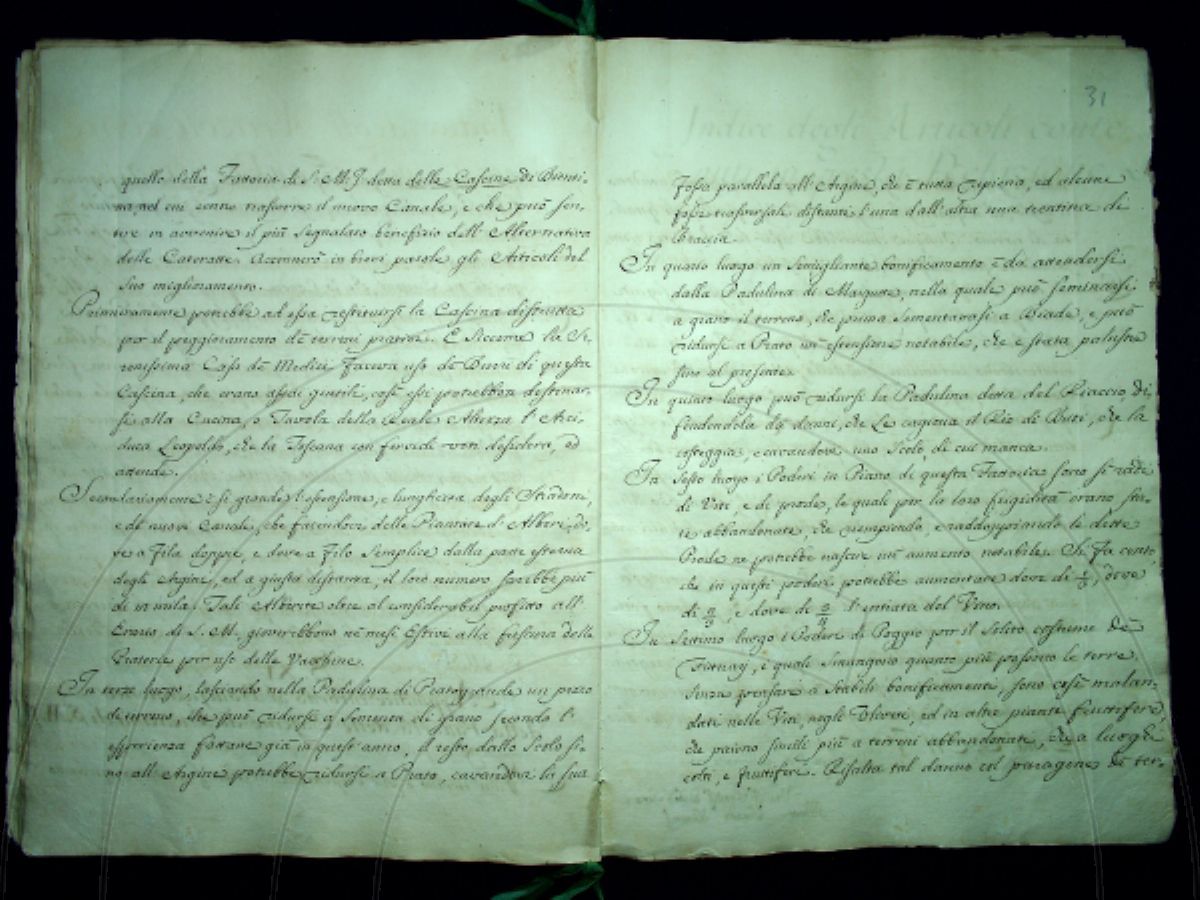 quello della Fattoria di S. M. I. detta delle Cascine di Bienti-
na, nel cui conno trascorre il nuovo Canale, e che può sen-
tire in avvenire il più segnalato benefizio dell'Alternativa
delle Cateratte. Accennerò in brevi parole gli Articoli del
suo miglioramento.
Primieramente potrebbe ad essa restituirsi la Cascina dismessa
per il peggioramento de terreni prativi. E siccome la Se-
renissima Casa de Medici faceva uso de Burri di questa
Cascina, che erano assai gentili, così essi potrebbon destinar-
si alla Cucina, o Tavola della Reale Altezza l'Arci-
duca Leopoldo, che la Toscana con fervidi voti desidera, ed
attende.
Secondariamente è sì grande l'estensione, e lunghezza degli Stradoni,
e de nuovi Canali, che facendovi delle Piantate d'Alberi, do-
ve a fila doppie, e dove a filo semplice dalla parte esterna
degli Argini, ed a giusta distanza, il loro numero sarebbe più
di mila. Tali Alberete oltre al considerabil profitto all'
Erario di S. M., gioverebbono ne mesi Estivi alla frescura delle
Praterie per uso delle Vacchine.
In terzo luogo, lasciando nella Padulina di Pratogrande un pezzo
di terreno, che può ridursi a sementa di grano secondo l'
esperienza fattane già in quest'anno, il resto dallo Scolo fi-
no all'Argine potrebbe ridursi a Prato, cavandovi la sua
31
fossa parallela all'Argine, che è tutta ripiena, ed alcune
fosse trasversali distanti l'una dall'altra una trentina di
braccia.
In quarto luogo un simigliante bonificamento è da attendersi
dalla Padulina di nella quale può seminarsi
a grano il terreno, che prima sementavasi a Biade, e può
ridursi a Prato un'estensione notabile, che è stata palustre
fino al presente.
In quinto luogo può ridursi la Padulina detta del di-
fendendola da danni, che le cagiona il Rio di Buti, che la
costeggia, e cavandovi uno Scolo, di cui manca.
In sesto luogo i Poderi in Piano di questa Fattoria sono sì radi
di Viti, e di prode, le quali per la loro frigidità erano sta-
te abbandonate, che riempiendo, e raddoppiando le dette
Prode ne potrebbe nascere un aumento notabile. Si fa conto,
che in questi poderi potrebbe aumentare dove di dove
di e dove di l'entrata del Vino.
In settimo luogo i Poderi di Poggio per il solito costume de
i quali smungono quanto più possono le terre,
senza pensare a stabili bonificamenti, sono così malan-
dati nelle Viti, negli Uliveti, ed in altre piante fruttifere,
che paiono simili più a terreni abbandonati, che a luoghi
colti, e fruttiferi. Risalta tal danno col paragone de ter-